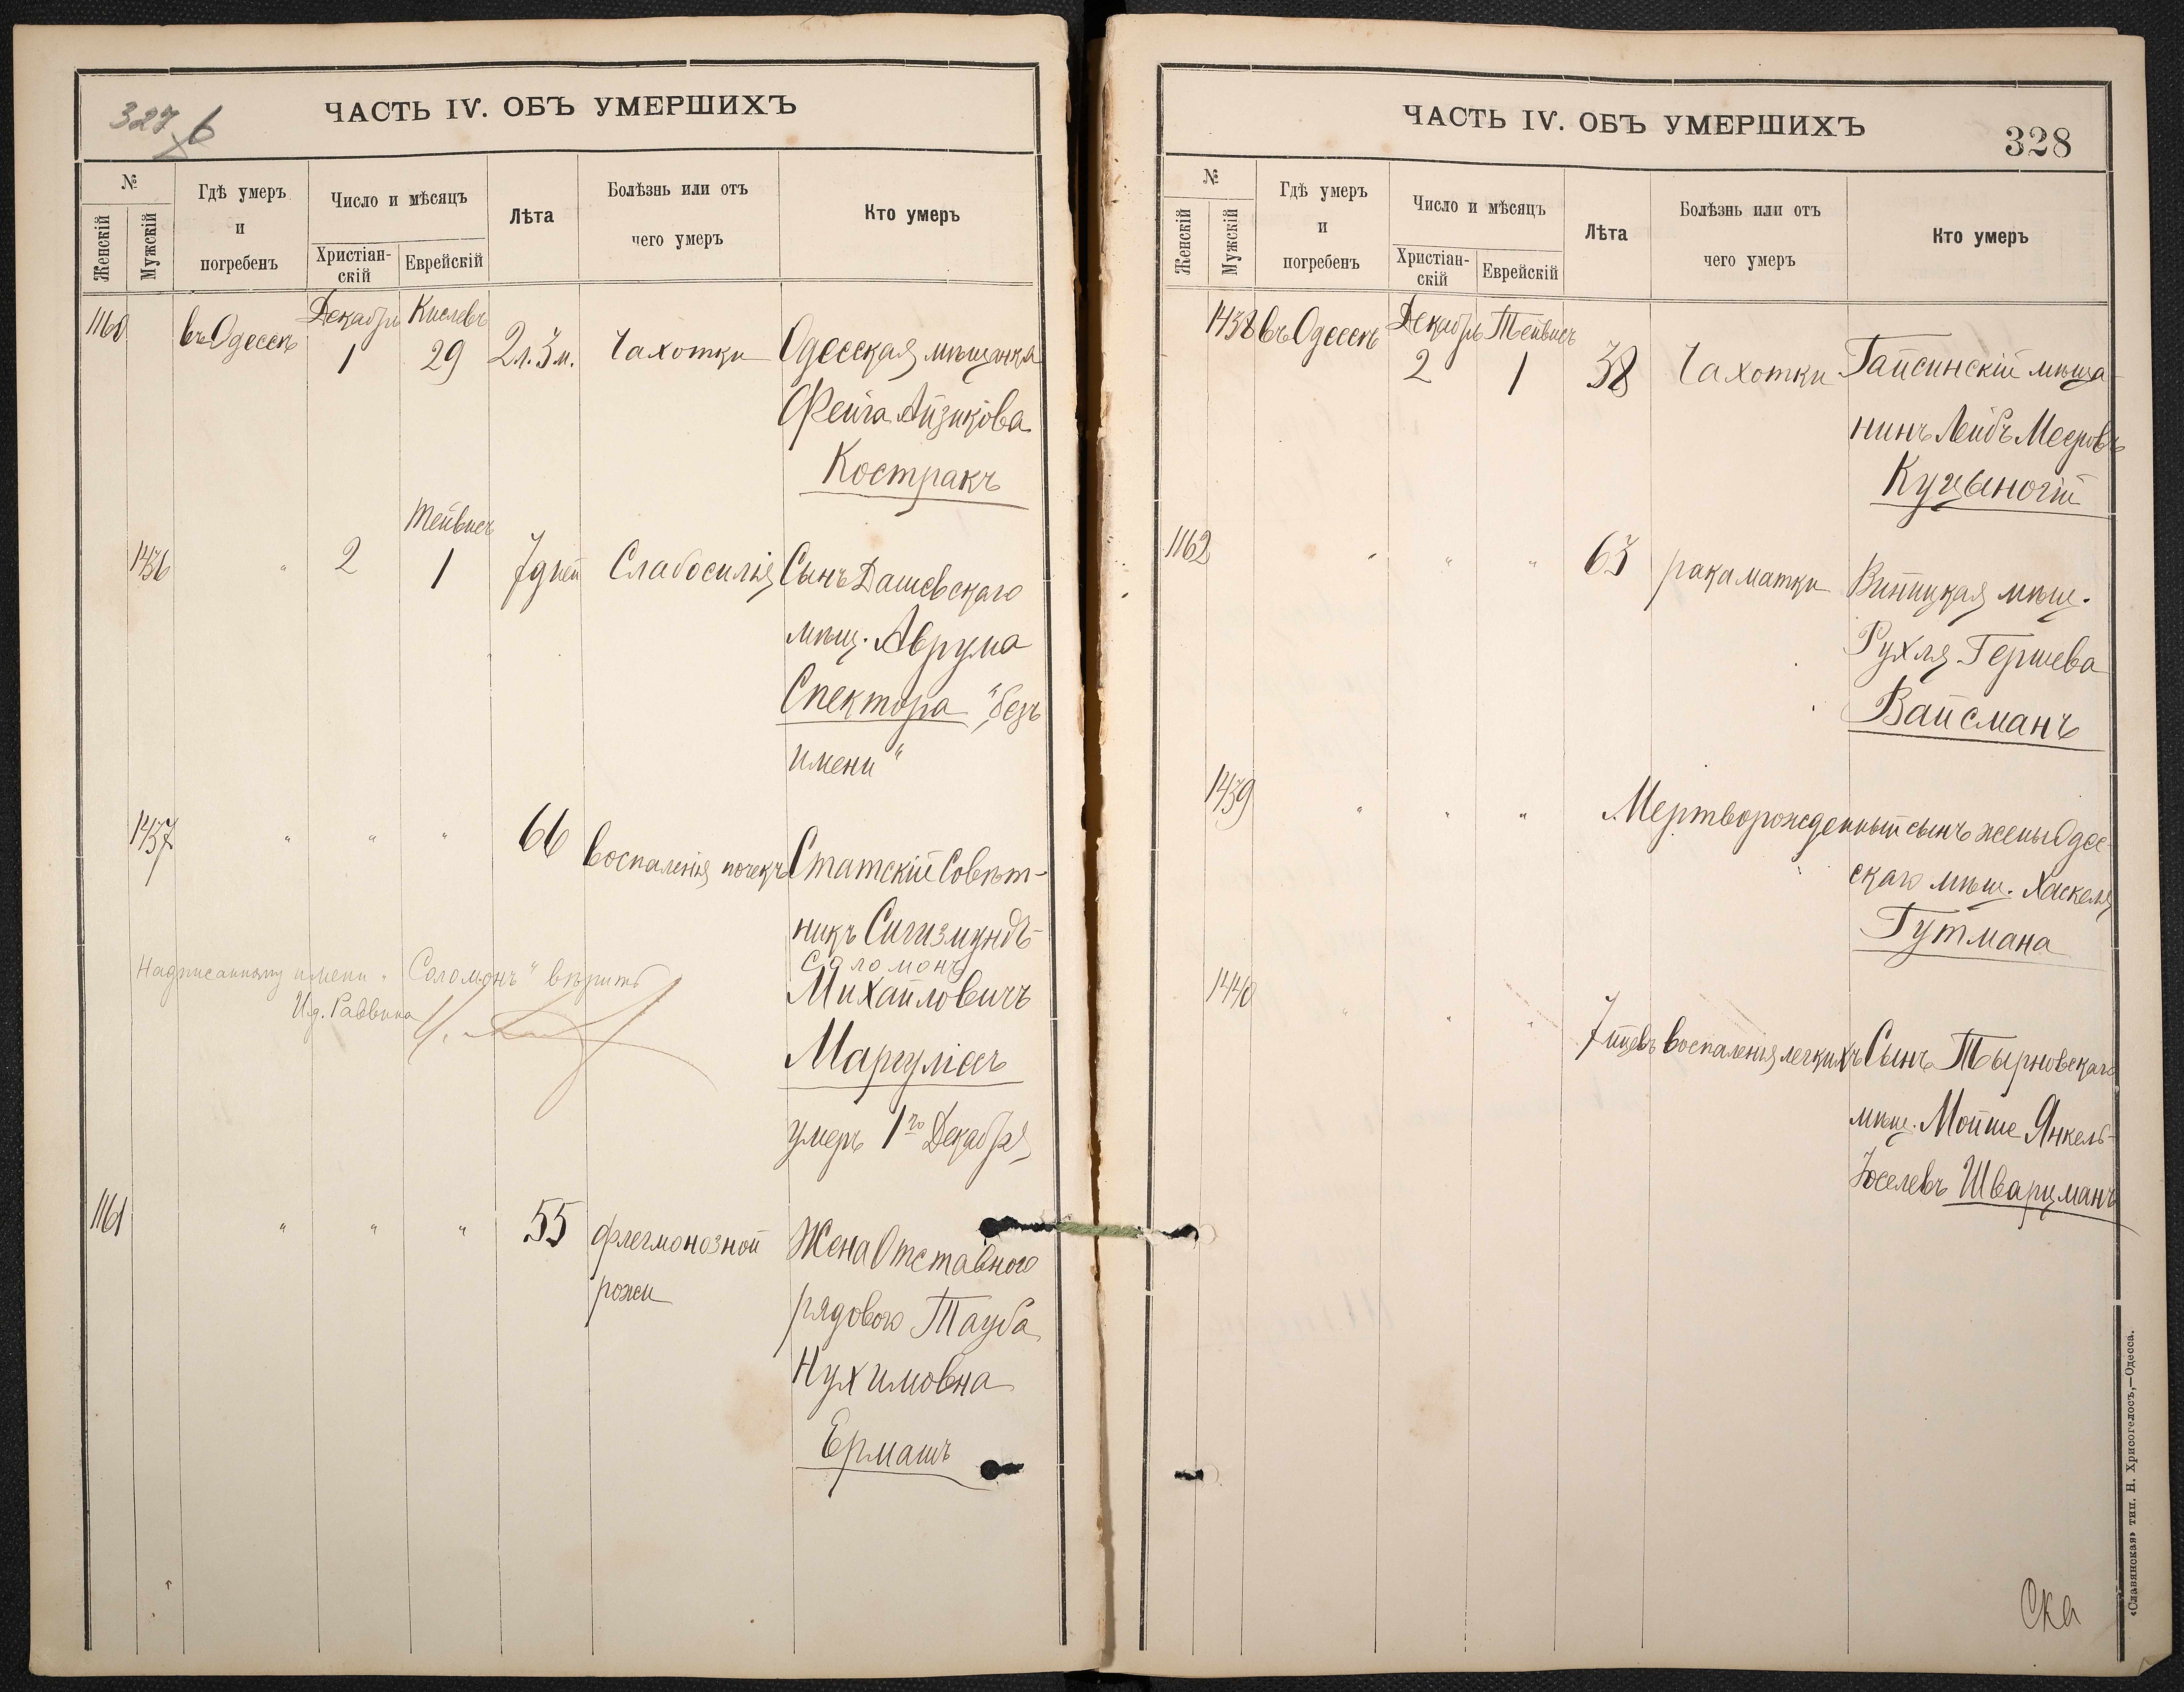 327 б
ЧАСТЬ IV. ОБЪ УМЕРШИХЪ
№
Женскій
Мужскій
Гдѣ умеръ
и
погребенъ
Число и мѣсяцъ
Христіан-
скій
Еврейскій
Лѣта
Болѣзнь или отъ
чего умеръ
Кто умеръ
1160 въ Одессѣ Декабрь 1 Кислевъ 29 2 л. 3 м. Чахотки Одесская мѣщанка
Фейга Айзикова
Костракъ
Тейвисъ
1436 " 2 1 7 дней Слабосилія Сынъ Дашевскаго
мѣщ. Аврума
Спектора „безъ
имени“
1437 " " " 66 воспаленія почекъ Статскій Совѣт-
никъ Сигизмундъ-
Соломонъ
Михайловичъ
Маргулісъ
умеръ 1го Декабря
Надписанному имени „Соломонъ“ вѣрить
И.д. Раввина
1161 " " " 55 флегмонозной Жена Отставного
рожи
рядового Тауба
Нухимовна
Ермашъ
ЧАСТЬ IV. ОБЪ УМЕРШИХЪ
328
№
Женскій
Мужскій
Гдѣ умеръ
и
погребенъ
Число и мѣсяцъ
Христіан-
скій
Еврейскій
Лѣта
Болѣзнь или отъ
чего умеръ
Кто умеръ
1438 въ Одессѣ Декабрь 2 Тейвисъ 1 38 Чахотки Гайсинскій мѣща-
нинъ Лейбъ Мееровъ
Куцыногій
1162 " " " 63 рака матки Винницкая мѣщ.
Рухля Гершева
Вайсманъ
1439 " " " Мертворожденный сынъ жены Одес-
скаго мѣщ. Хаскеля
Гутмана
1440 " " " 7 мцевъ воспаленія легкихъ Сынъ Тырновскаго
мѣщ. Мойше Янкель-
Іоселевъ Шварцманъ
Ска
«Славянская» тип. Н. Хрисогелосъ,—Одесса.